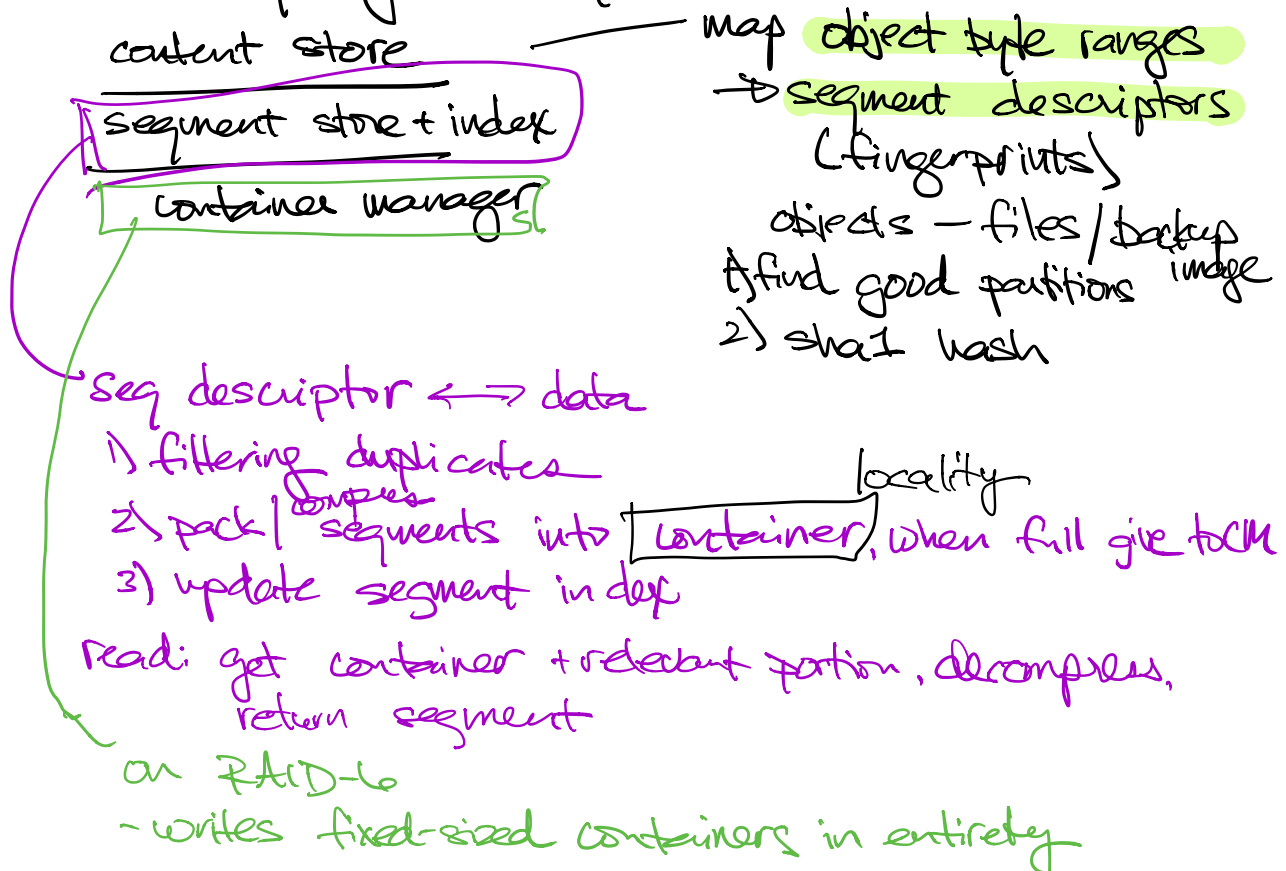 content store
segment store + index
container manager
map object byte ranges
→ segment descriptors
(fingerprints)
objects – files / backup image
1) find good partitions
2) sha1 hash
seg descriptor ←→ data
1) filtering duplicates
2) pack / compress segments into container, when full give to CM
locality
3) update segment index
read: get container + relevant portion, decompress,
return segment
on RAID-6
- writes fixed-sized containers in entirety